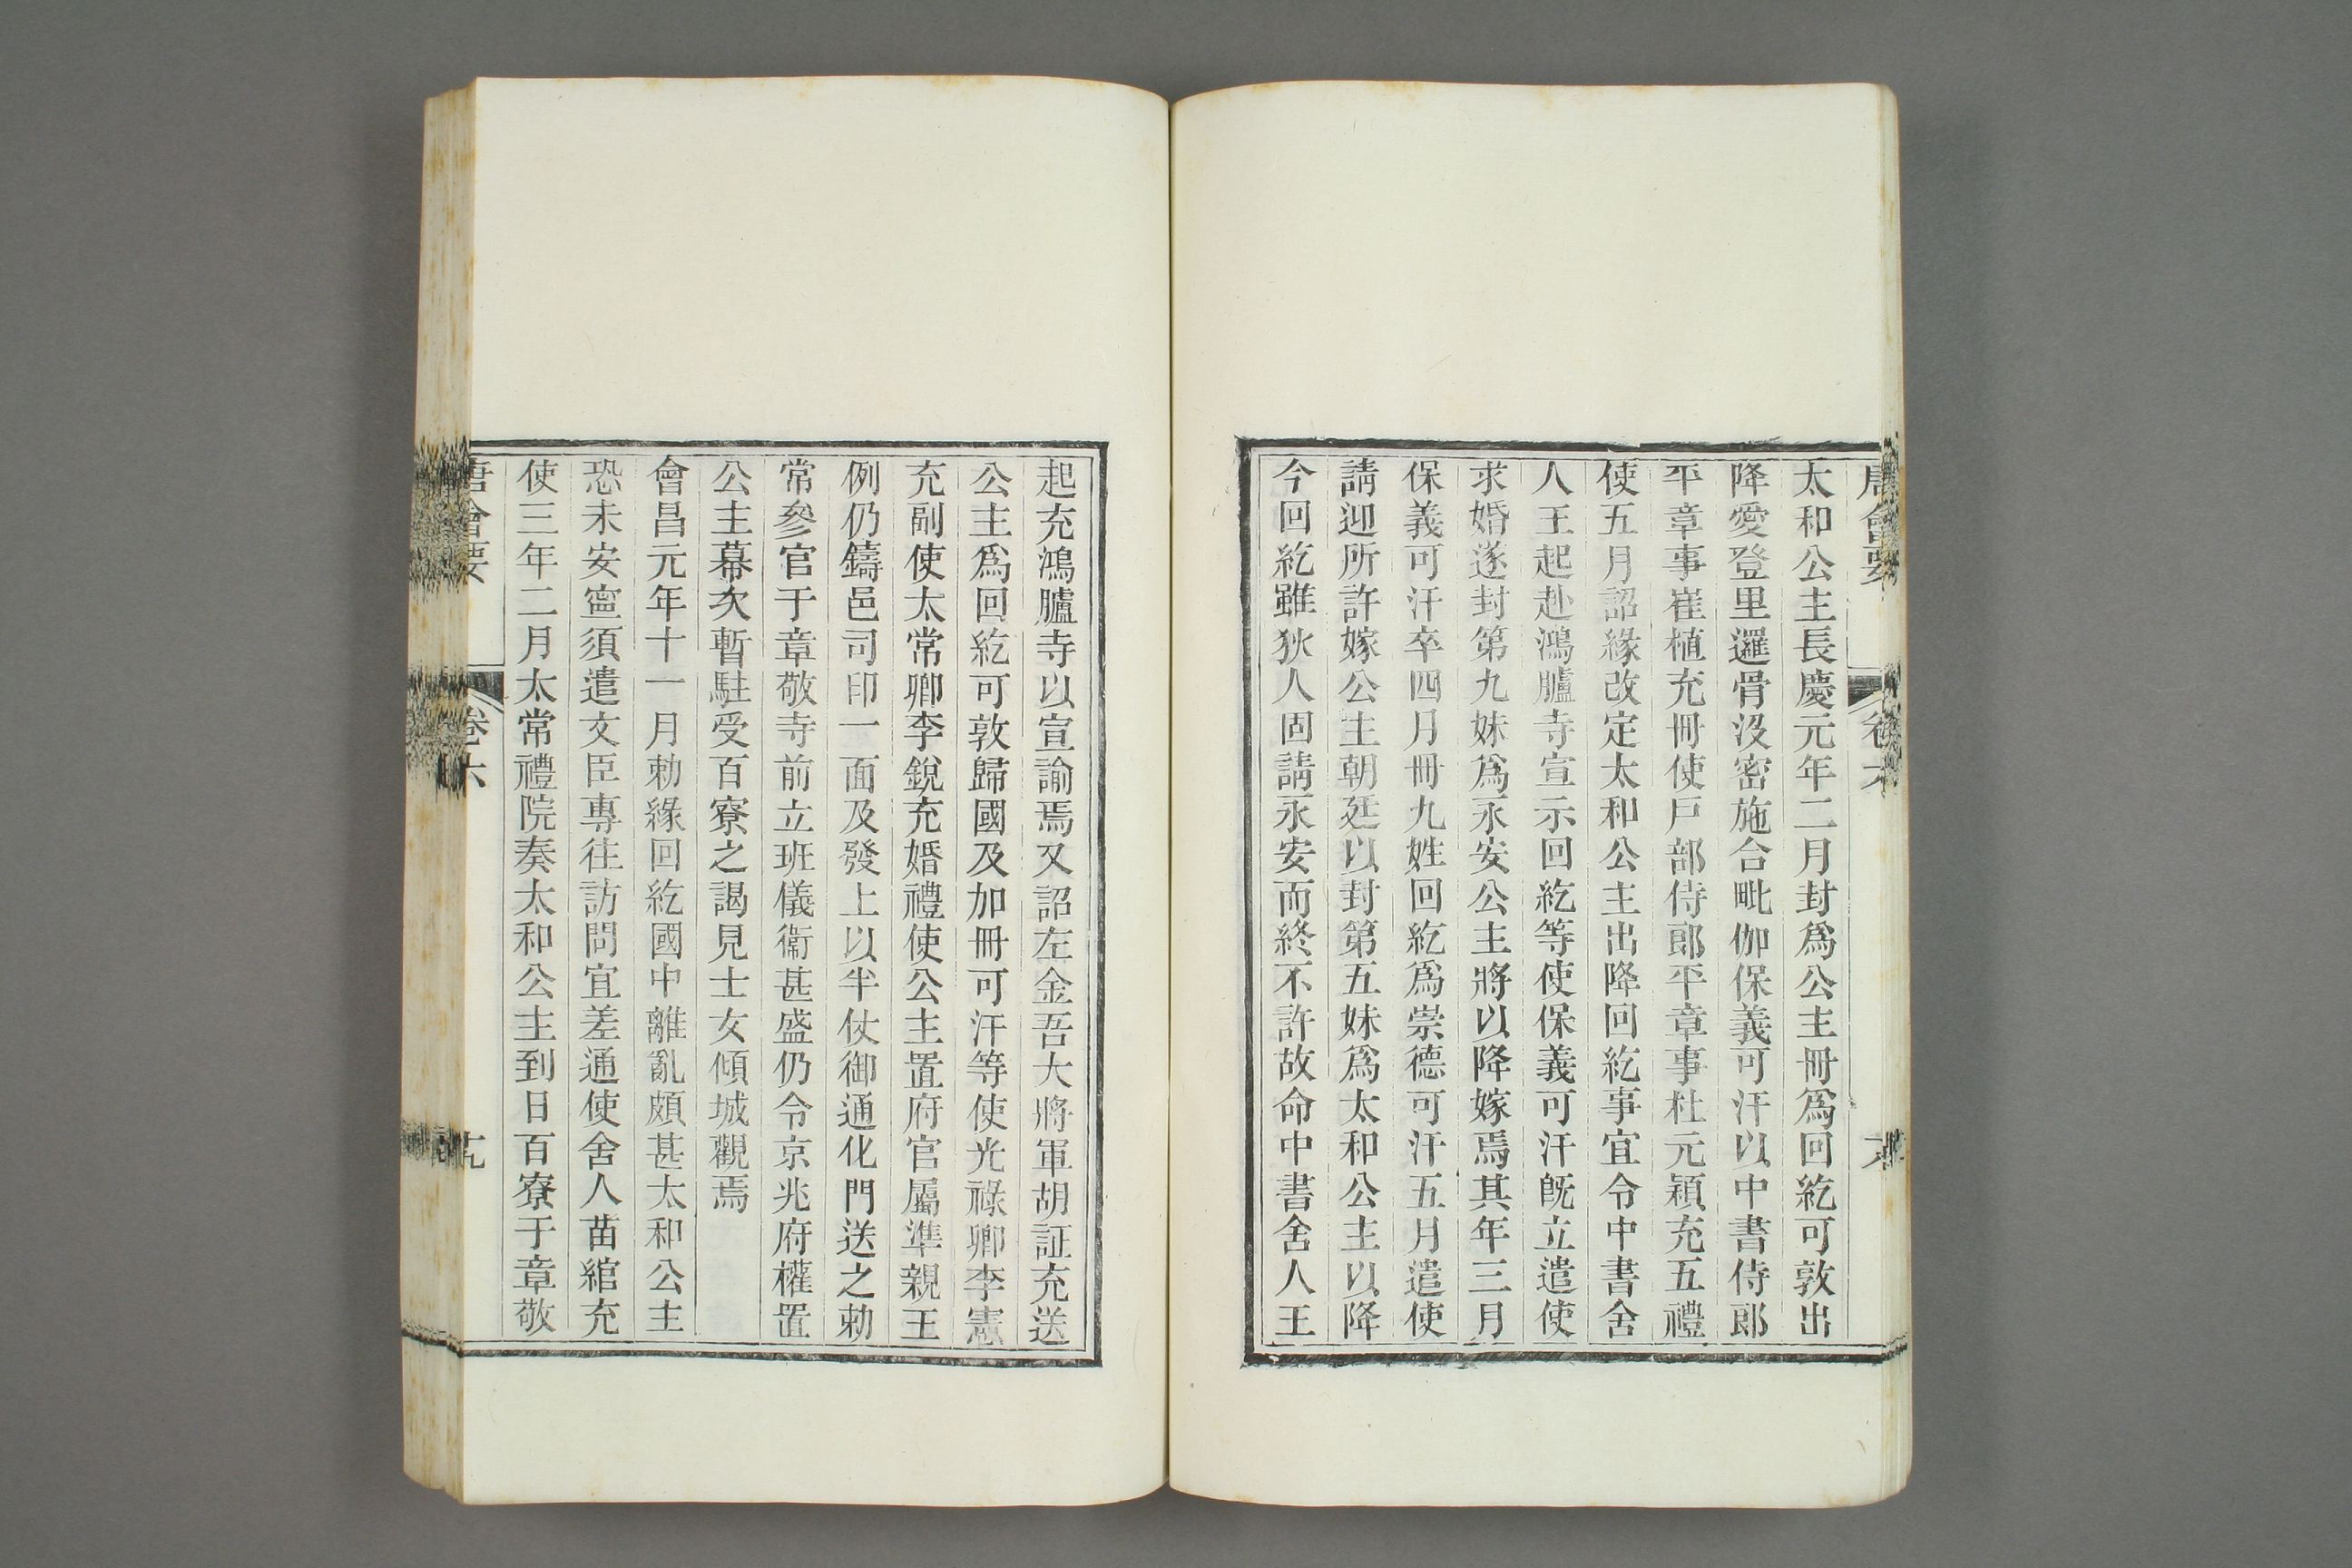 唐會要 卷六
太和公主長慶元年二月封爲公主冊爲回紇可敦出
降愛登里邏骨沒密施合毗伽保義可汗以中書侍郎
平章事崔植充冊使戸部侍郎平章事杜元穎充五禮
使五月詔緣改定太和公主出降回紇事宜令中書舍
人王起赴鴻臚寺宣示回紇等使保義可汗旣立遣使
求婚遂封第九妹爲永安公主將以降嫁焉其年三月
保義可汗卒四月冊九姓回紇爲崇德可汗五月遣使
請迎所許嫁公主朝廷以封第五妹爲太和公主以降
今回紇雖狄人固請永安而終不許故命中書舍人王
起充鴻臚寺以宣諭焉又詔左金吾大將軍胡証充送
公主爲回紇可敦歸國及加冊可汗等使光祿卿李憲
充副使太常卿李銳充婚禮使公主置府官屬準親王
例仍鑄邑司印一面及發上以半仗御通化門送之勅
常參官于章敬寺前立班儀衞甚盛仍令京兆府權置
公主幕次暫駐受百寮之謁見士女傾城觀焉
會昌元年十一月勅緣回紇國中離亂頗甚太和公主
恐未安寍須遣文臣專往訪問宜差通使舍人苗縮充
使三年二月太常禮院奏太和公主到日百寮于章敬
唐會要 卷六